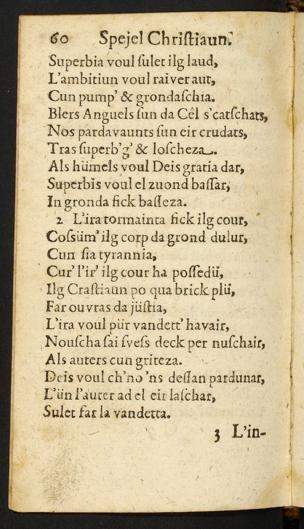 60 Spejel Christiaun.
Superbia voul sulet ilg laud,
L'ambitiun voul raiver aut,
Cun pump' & grondaschia.
Blers Anguels sun da Cêl s'catschats,
Nos pardavaunts sun eir crudats,
Tras superb'g' & loscheza.
Als hümels voul Deis gratia dar,
Superbis voul el zuond bassar,
In gronda fick basseza.
2 L'ira tormainta fick ilg cour,
Cossüm' ilg corp da grond dulur,
Cun sia tyrannia,
Cur' l'ir' ilg cour ha possedü,
Ilg Crastiaun po qua brick plü,
Far ouvras da jüstia,
L'ira voul pür vandett' havair,
Nouscha sai svess deck per nuschair,
Als auters cun griteza.
Deis voul ch'no 'ns dessan pardunar,
L'ün l'auter ad el eir laschar,
Sulet far la vandetta.
3 L'in-